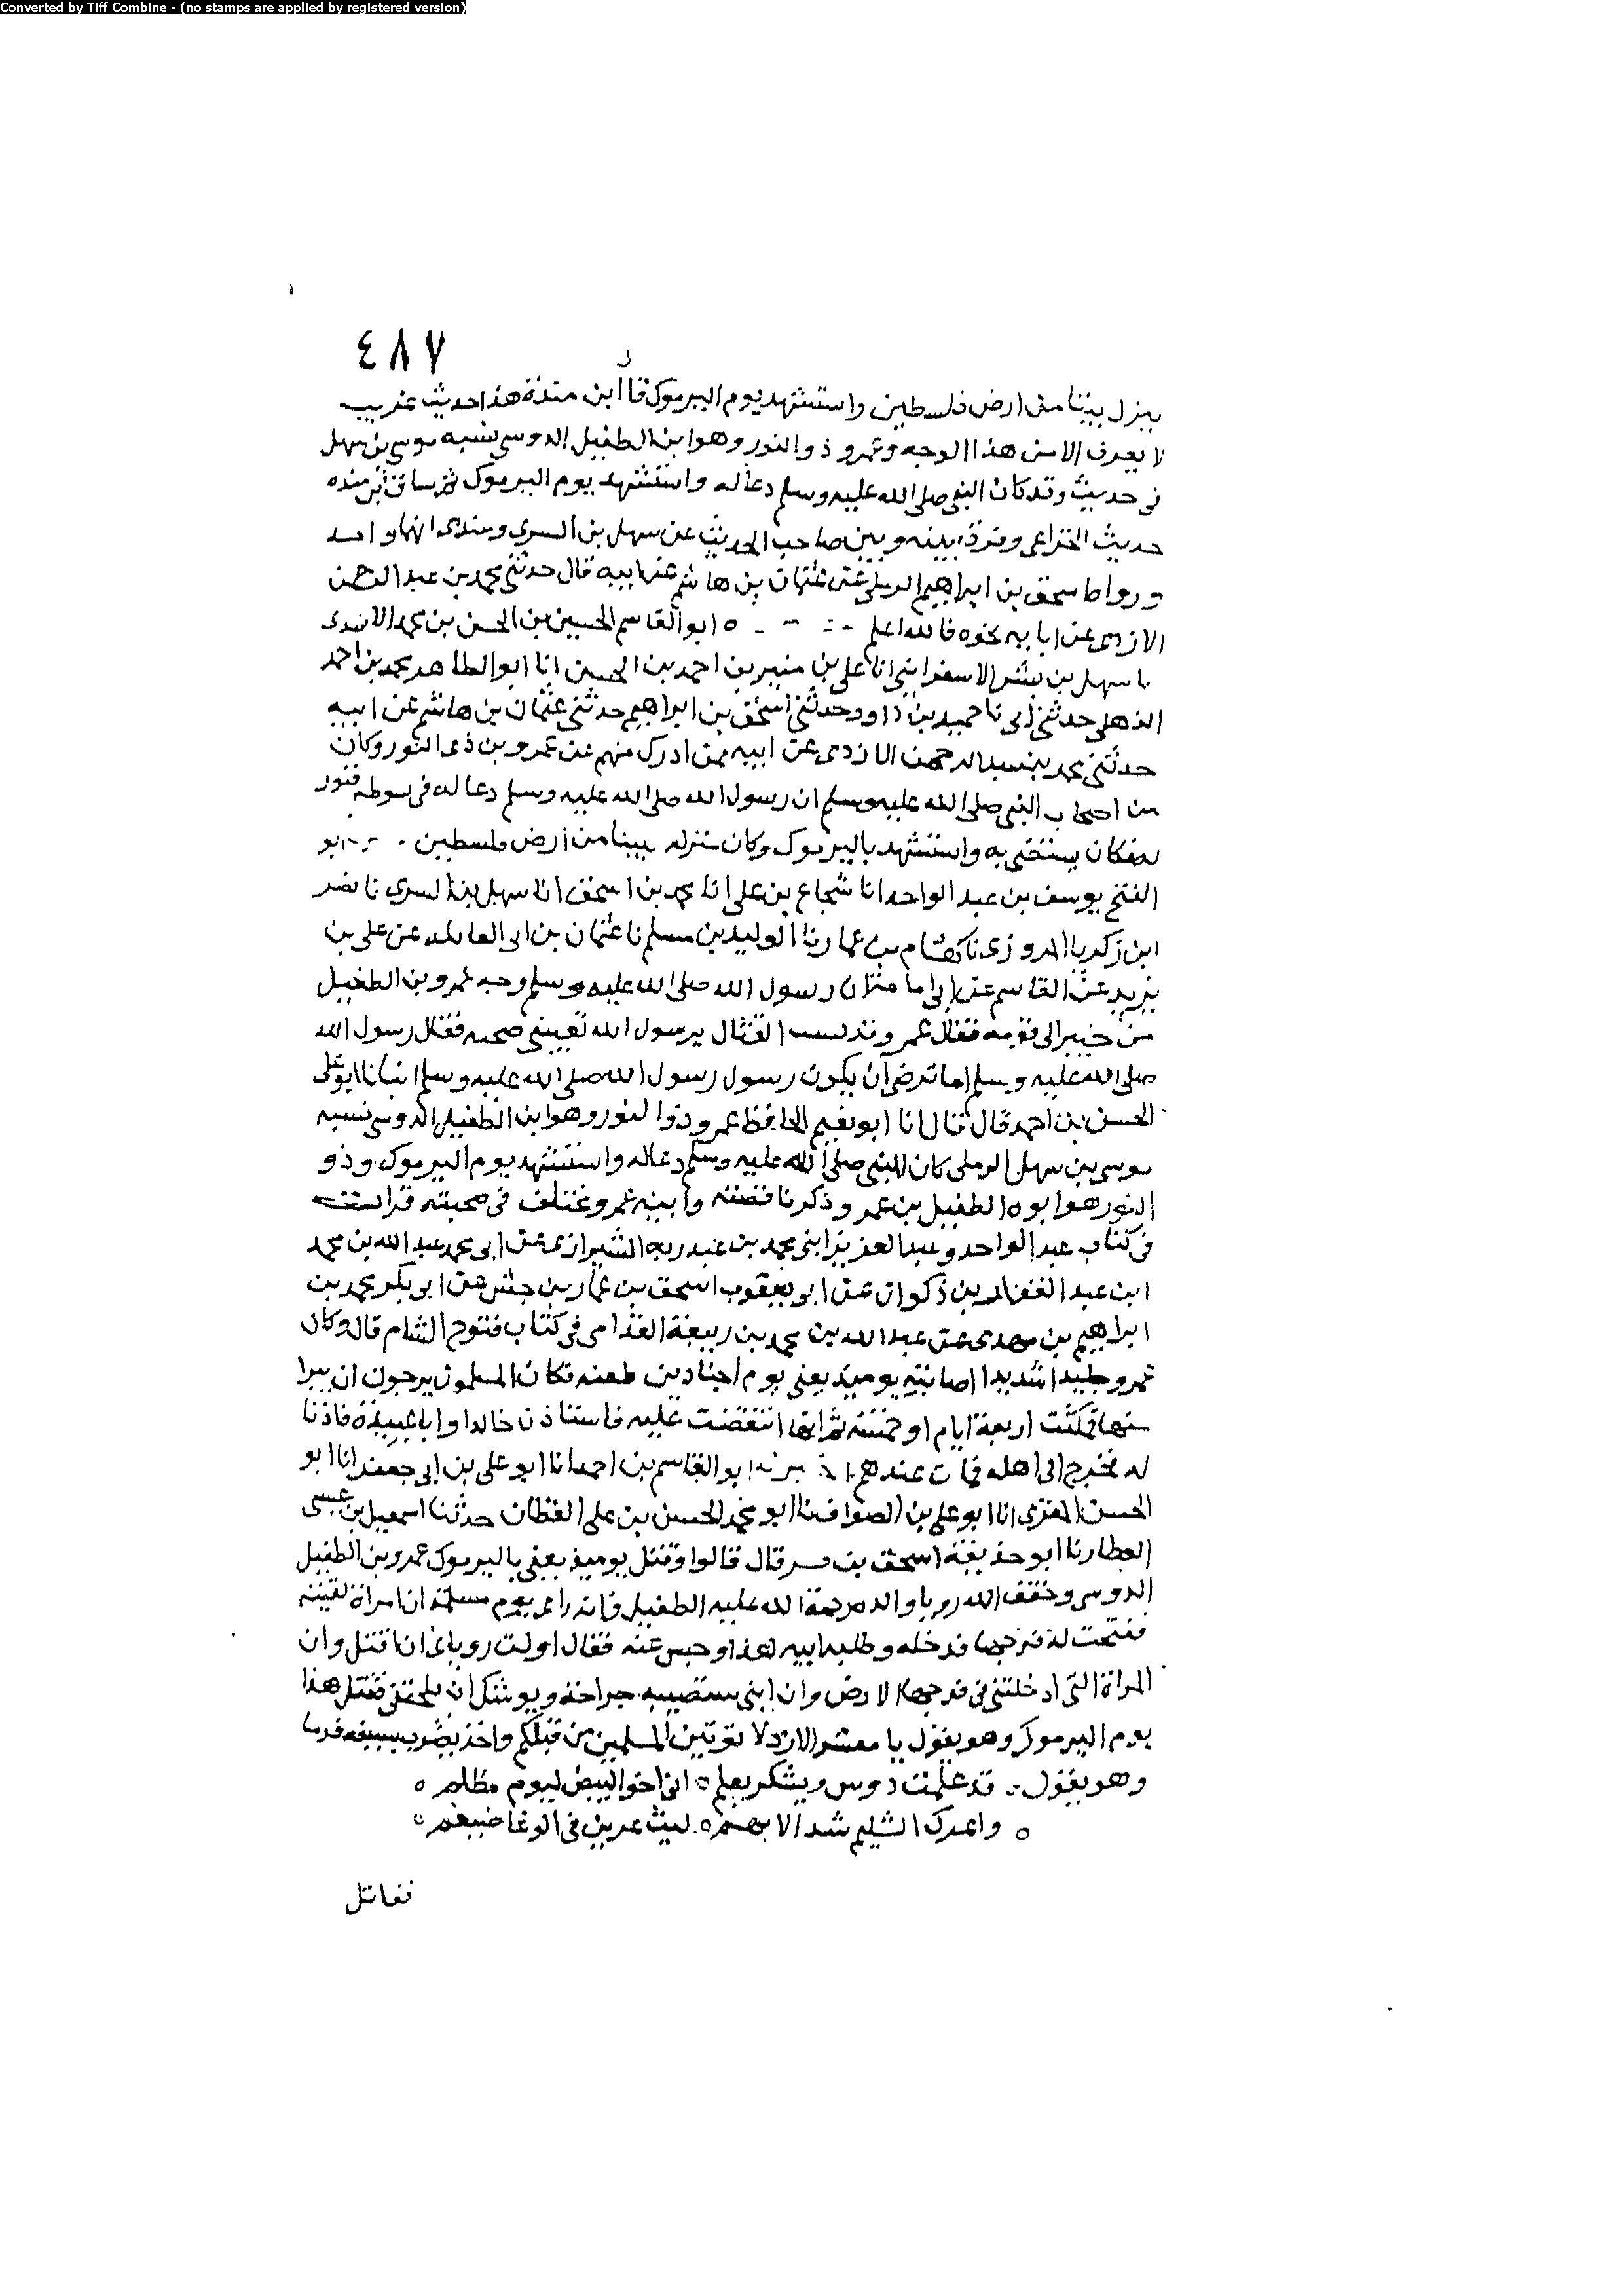 Converted by Tiff Combine - (no stamps are applied by registered version)
٤٨٧
ينزل بيتنا من ارض فلسطين واستشهد يوم اليرموك قال ابن مندة هذا حديث غريب
لا يعرف الا من هذا الوجه وعمرو ذو النور وهو ابن الطفيل الدوسي نسبه موسى بن سهل
في حديث وقد كان النبي صلى الله عليه وسلم دعا له واستشهد يوم اليرموك ثم ساق ابن منده
حديث الخزاعى وفرق بينه وبين صاحب الحديث عن سهل بن السري وعندى انهما واحد
ورواه اسحق بن ابراهيم الرملى عن عثمان بن هاشم عن ابيه قال حدثنى محمد بن عبد الرحمن
الازدى عن ابا بيه نحوه فالله اعلم ه ابو القاسم الحسين بن الحسن بن محمد الاسدى
نا سهل بن بشر الاسفراينى انا على بن منير بن احمد بن الحسن انا ابو الطاهر محمد بن احمد
الذهلى حدثنى ابى نا حميد بن داود وحدثنى اسحق بن ابراهيم حدثنى عثمان بن هاشم عن ابيه
حدثنى محمد بن عبد الرحمن الازدى عن ابيه ممن ادرك منهم عن عمرو بن ذى النور وكان
من اصحاب النبي صلى الله عليه وسلم ان رسول الله صلى الله عليه وسلم دعا له فى سوطه فنور
له فكان يستضى به واستشهد باليرموك وكان منزله ببيتا من ارض فلسطين ابو
الفتح يوسف بن عبد الواحد انا شجاع بن على انا محمد بن اسحق انا سهل بن السرى نا نصر
ابن زكريا المروزى نا هشام بن عمار نا الوليد بن مسلم نا عثمان بن ابى العاتكه عن على بن
يزيد عن القاسم عن ابى امامة ان رسول الله صلى الله عليه وسلم وجه عمرو بن الطفيل
من خيبر الى قومه فقال عمرو القتال يرسول الله تغيبنى عنه فقال رسول الله
صلى الله عليه وسلم اما ترضى ان يكون رسول رسول الله صلى الله عليه وسلم انبانا ابو على
الحسن بن احمد قال قال لنا ابو نعيم الحافظ عمرو ذوا لنور وهو ابن الطفيل الدوسى نسبه
موسى بن سهل الرملى كان النبى صلى الله عليه وسلم دعا له واستشهد يوم اليرموك وذو
النور هو ابوه الطفيل بن عمرو ذكرنا قصته وابنه عمرو مختلف فى صحبته قرات
فى كتاب عبد الواحد وعبد العزيز ابنى محمد بن عبد ربه الشيرازى عن ابى محمد عبد الله بن محمد
ابن عبد الغفار بن ذكوان عن ابى يعقوب اسحق بن عمار بن جش عن ابى بكر محمد بن
ابراهيم بن مهدى عن عبد الله بن محمد بن ربيعة القدامى فى كتاب فتوح الشام قال وكان
عمرو جليدا شديدا اصابته يوميذ يعنى يوم اجنادين طعنه فكان المسلمون يرجون ان يبرا
منها فمكثت اربعة ايام او خمسة ثم انها انتقضت عليه فاستاذن خالدا وابا عبيدة فاذنا
له فخرج الى اهله فمات عندهم اخبرنا ابو القاسم بن احمد انا ابو على بن ابى جعفر انا ابو
الحسن المقرى انا ابو على بن الصواف نا ابو محمد الحسن بن على القطان حدثنا اسمعيل بن عيسى
العطار نا ابو حذيفة اسحق بن بشر قال قالوا وقتل يوميذ يعنى باليرموك عمرو بن الطفيل
الدوسى وحقق الله رويا والده رحمة الله عليه الطفيل فانه راى يوم مسيلمة ان امراة لقيته
ففتحت له فرجها فدخله وطلبه ابيه هذا وحبس عنه فقال اولت روياى ان اقتل وان
المراة التى ادخلتنى فى فرجها الارض وان ابنى ستصيبه جراحة ويوشك ان يلحقنى فقتل هذا
يوم اليرموك وهو يقول يا معشر الازد لا توتين المسلمين من قبلكم واخذ يضرب بسيفه قدما
وهو يقول قد علمت دوس ويشكر يعلم ه انى اخو البيض ليوم مظلم ه
ه واعرك الشليم شد الابهم ه ليث عرين فى الوغا ضيغم ه
فقاتل